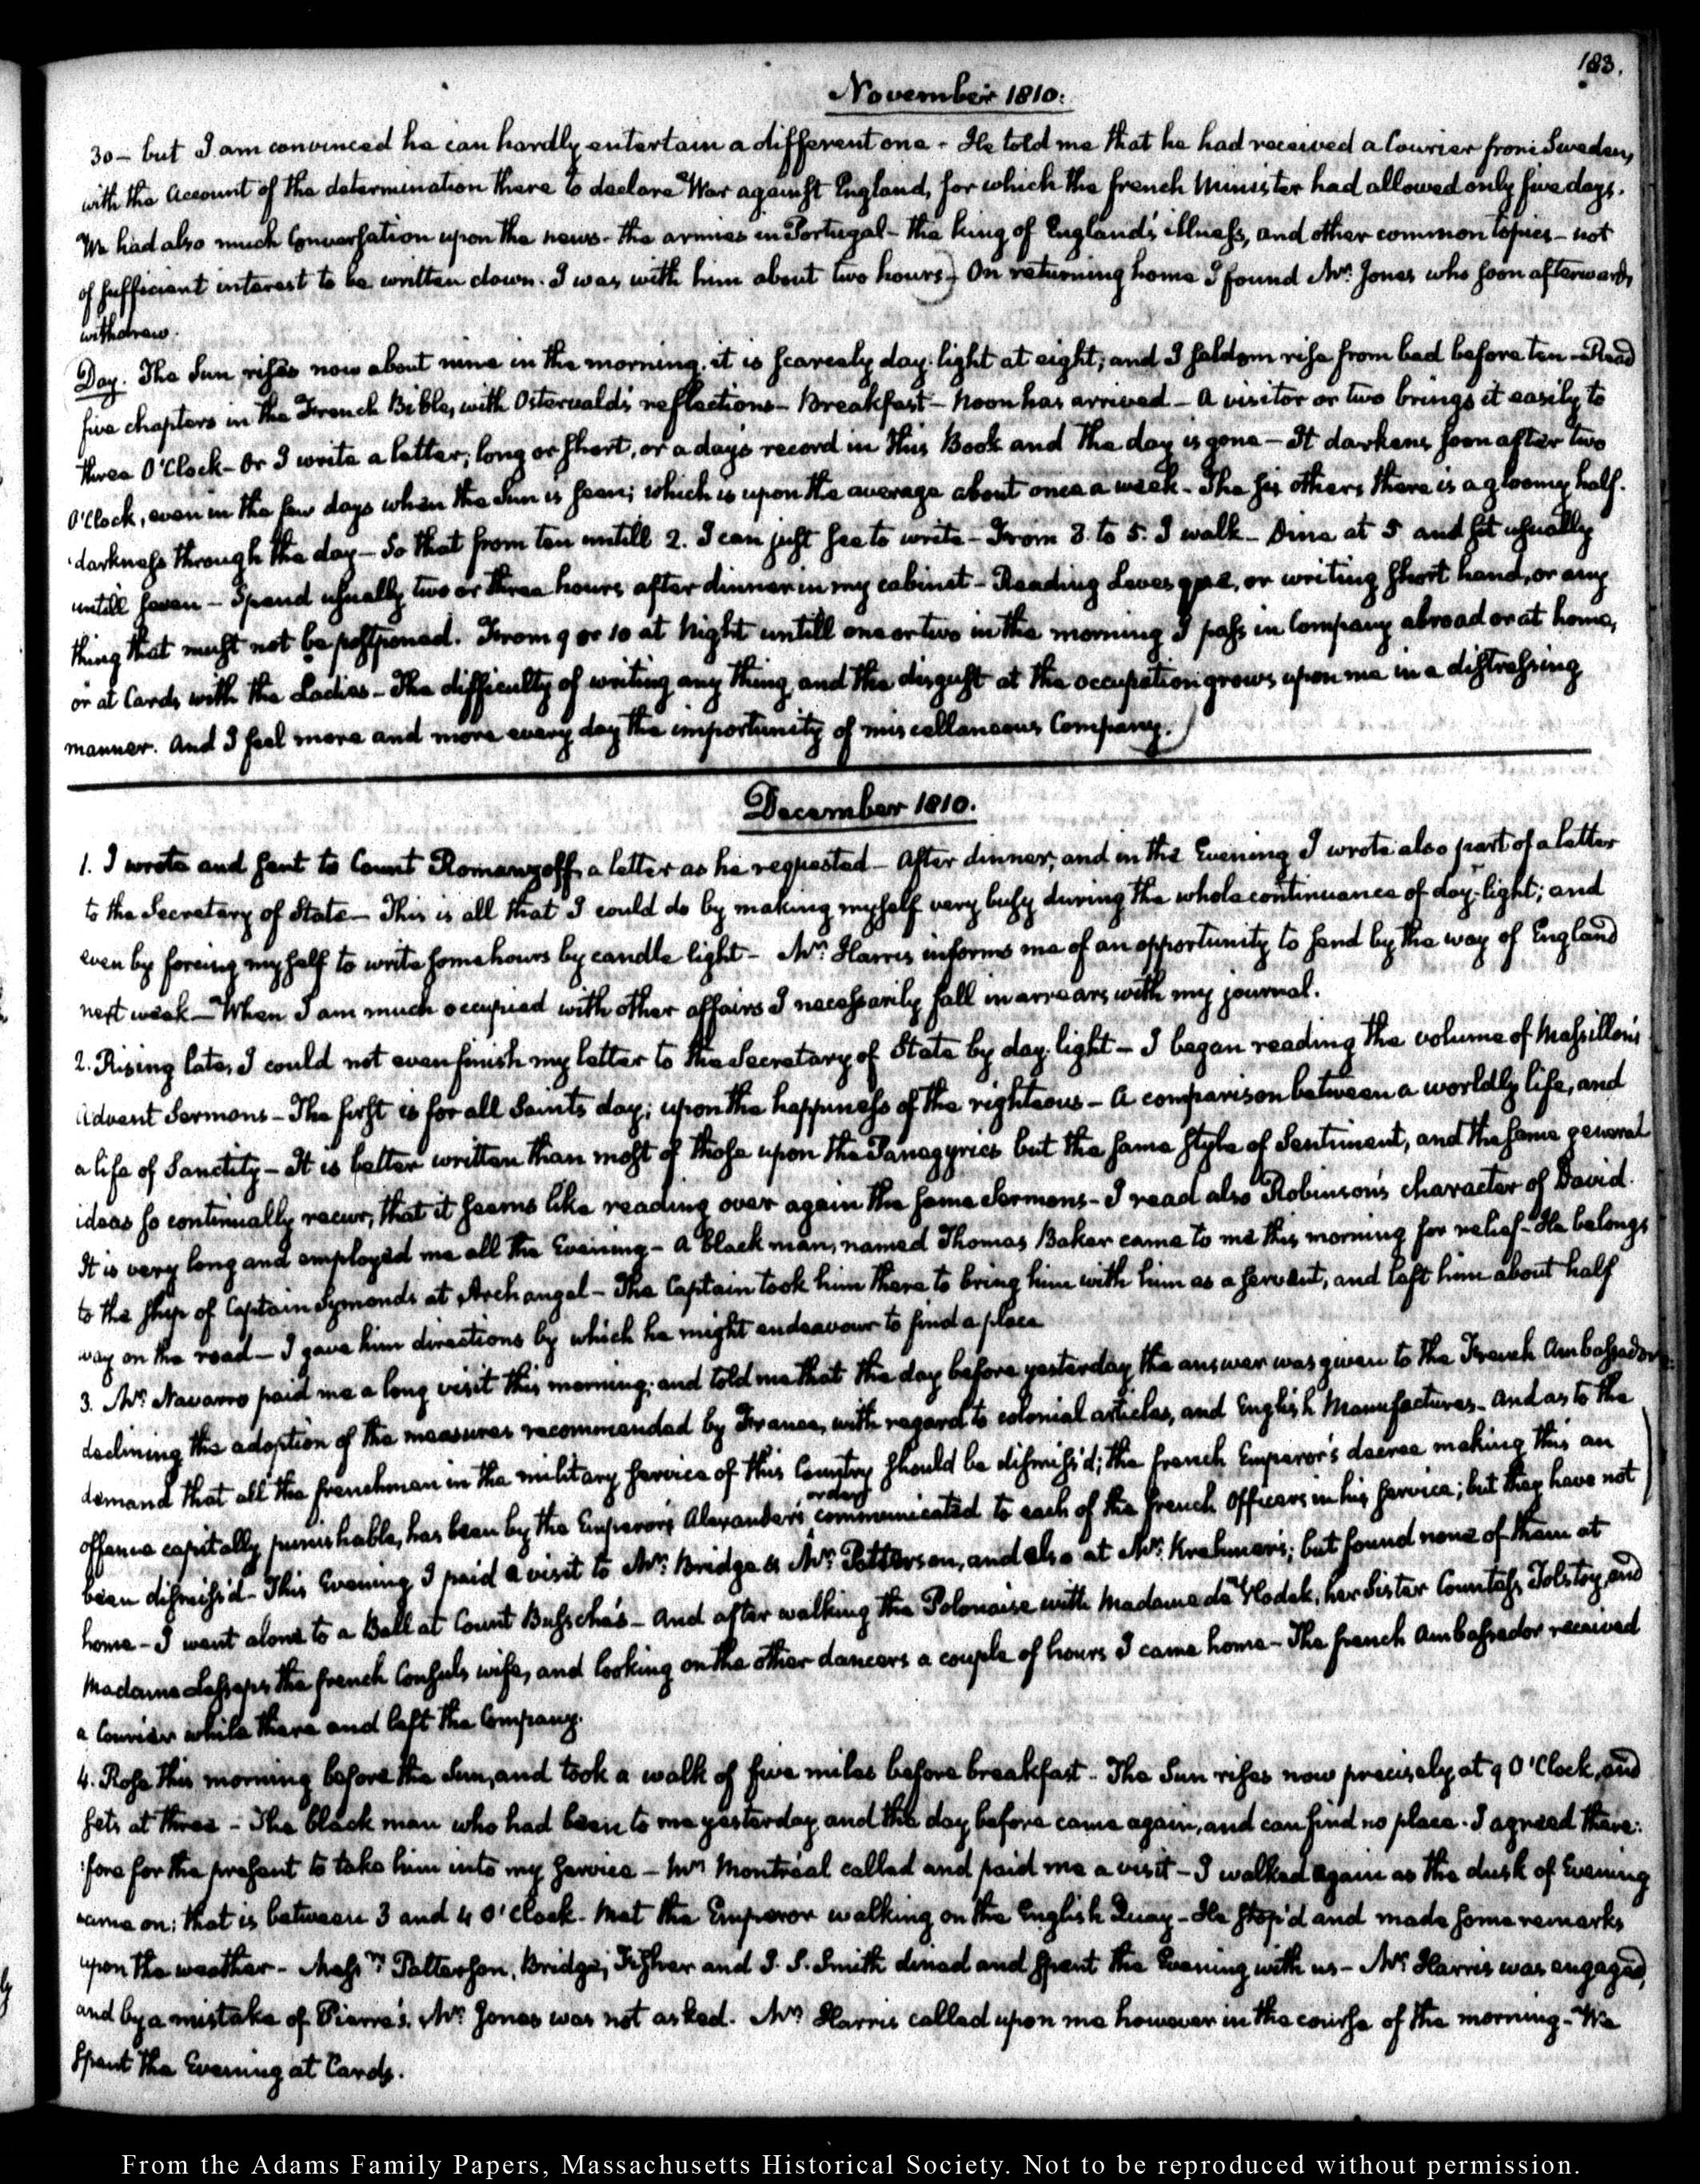 183.
November 1810.
30 — but I am convinced he can hardly entertain a different one - He told me that he had received a Courier from Sweden,
with the account of the determination there to declare War against England, for which the french Minister had allowed only five days.
We had also much Conversation upon the news - the armies in Portugal - the king of England's illness, and other common topics - not
of sufficient interest to be written down. I was with him about two hours) - On returning home I found Mr. Jones who soon afterwards
withdrew.
Day. The Sun rises now about nine in the morning. it is scarcely day-light at eight; and I seldom rise from bed before ten - Read
five chapters in the French Bible, with Ostervald's reflections - Breakfast - Noon has arrived - A visitor or two brings it easily to
three O'Clock - Or I write a letter, long or short, or a day's record in this Book and the day is gone - It darkens soon after two
O'Clock, even in the few days when the Sun is seen; which is upon the average about once a week - The six others there is a gloomy half-
darkness through the day - So that from ten untill 2. I can just see to write - From 3. to 5. I walk - Dine at 5 and sit usually
untill seven - Spend usually two or three hours after dinner in my cabinet - Reading or writing short hand, or any
thing that must not be postponed. From 9 or 10 at Night untill one or two in the morning I pass in Company abroad or at home,
or at Cards with the Ladies - The difficulty of writing any thing, and the disgust at the occupation grows upon me in a distressing
manner. And I feel more and more every day the importunity of miscellaneous Company.)
December 1810.
1. I wrote and sent to Count Romanzoff, a letter as he requested - After dinner, and in the Evening I wrote also part of a letter
to the Secretary of State - This is all that I could do by making myself very busy during the whole continuance of day-light; and
even by forcing myself to write some hours by candle light - Mr. Harris informs me of an opportunity to send by the way of England
next week - When I am much occupied with other affairs I necessarily fall in arrears with my journal.
2. Rising late, I could not even finish my letter to the Secretary of State by day-light - I began reading the volume of Massillon's
Advent Sermons - The first is for all Saints day; upon the happiness of the righteous - A comparison between a worldly life, and
a life of Sanctity - It is better written than most of those upon the Panegyrics but the same style of Sentiment, and the same general
ideas so continually recur, that it seems like reading over again the same Sermons - I read also Robinson's character of David.
It is very long and employed me all the Evening - A black man, named Thomas Baker came to me this morning for relief - He belongs
to the ship of Captain Symonds at Archangel - The Captain took him there to bring him with him as a servant, and left him about half
way on the road - I gave him directions by which he might endeavour to find a place
3. Mr. Navarro paid me a long visit this morning; and told me that the day before yesterday the answer was given to the French Ambassador
declining the adoption of the measures recommended by France, with regard to colonial articles, and English Manufactures - And as to the
demand that all the frenchmen in the military service of this Country should be dismiss'd; the french Emperor's decree making this an
offence capitally punishable, has been by the Emperor's Alexander's order communicated to each of the french Officers in his service; but they have not
been dismiss'd - This Evening I paid a visit to Mr. Bridge & Mr. Patterson, and also at Mr. Krehmer's; but found none of them at
home - I went alone to a Ball at Count Bussche's - And after walking the Polonaise with Madame de Vlodek, her Sister Countess Tolstoy, and
Madame Lesseps the french Consul's wife, and looking on the other dancers a couple of hours I came home - The french Ambassador received
a Courier while there and left the Company.
4. Rose this morning before the Sun, and took a walk of five miles before breakfast - The Sun rises now precisely at 9 O'Clock, and
sets at three - The black man who had been to me yesterday and the day before came again, and can find no place. I agreed there-
:fore for the present to take him into my service - Mr. Montreal called and paid me a visit - I walked again as the dusk of Evening
came on: that is between 3 and 4 O'Clock. Met the Emperor walking on the English Quay - He stop'd and made some remarks
upon the weather - Messrs. Patterson, Bridge, Fisher and J. S. Smith dined and spent the Evening with us - Mr. Harris was engaged,
and by a mistake of Pierre's, Mr. Jones was not asked. Mr. Harris called upon me however in the course of the morning - We
spent the Evening at Cards.
From the Adams Family Papers, Massachusetts Historical Society. Not to be reproduced without permission.